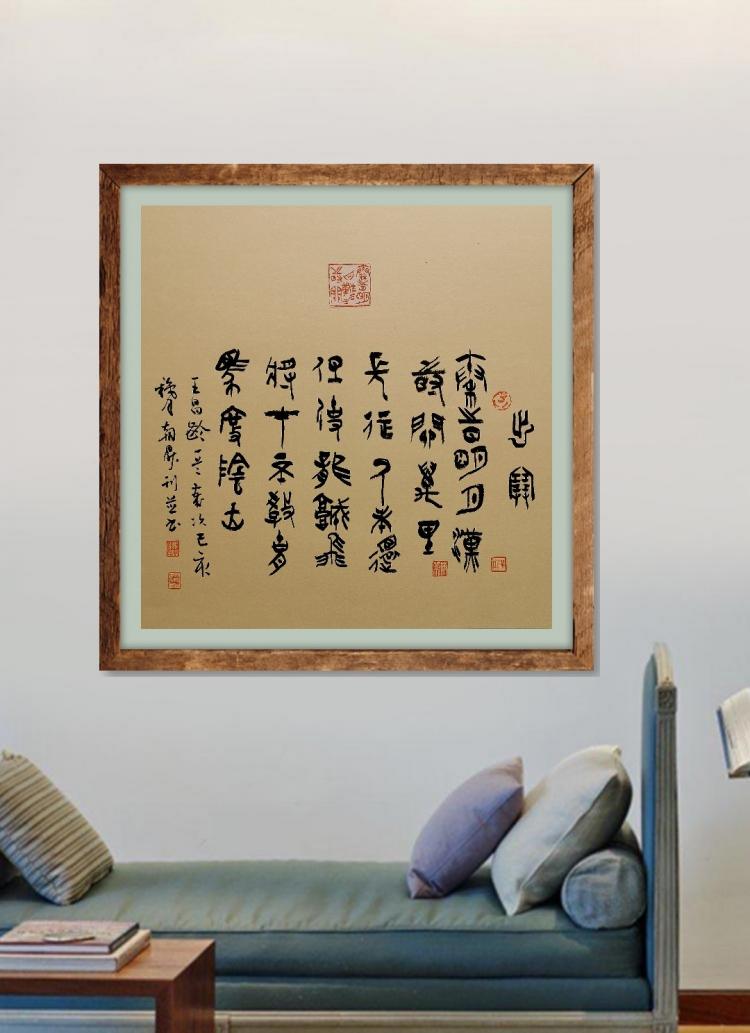 出塞
秦時明月漢
時關萬里
長征人未還
但使龍城飛
將在不教胡
馬度陰山
王昌齡 歲次己亥
月 書